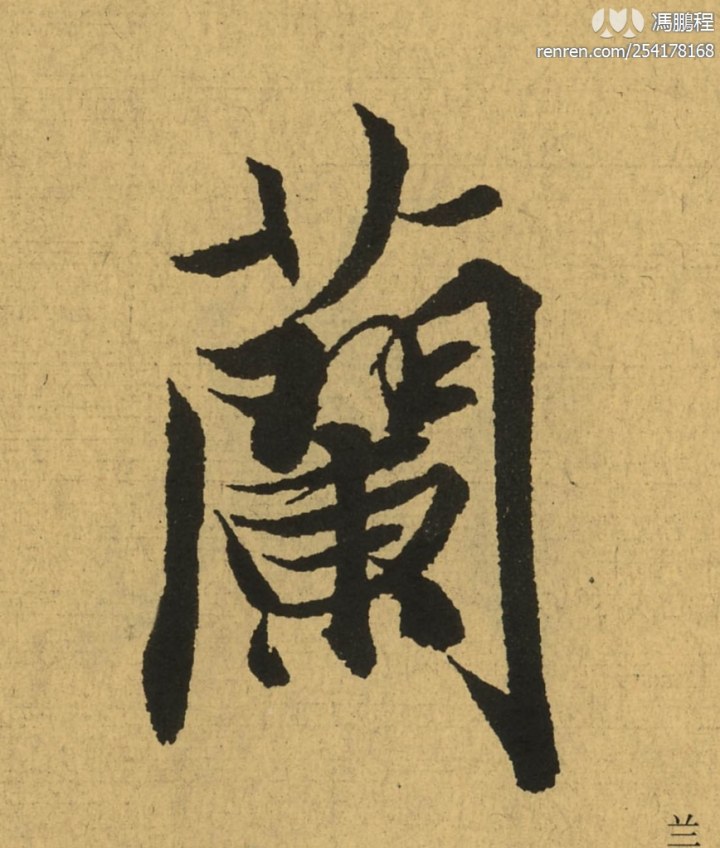 馮鵬程
renren.com/254178168
蘭
兰